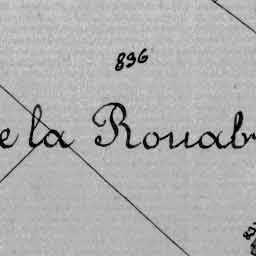 836
e la Rouab